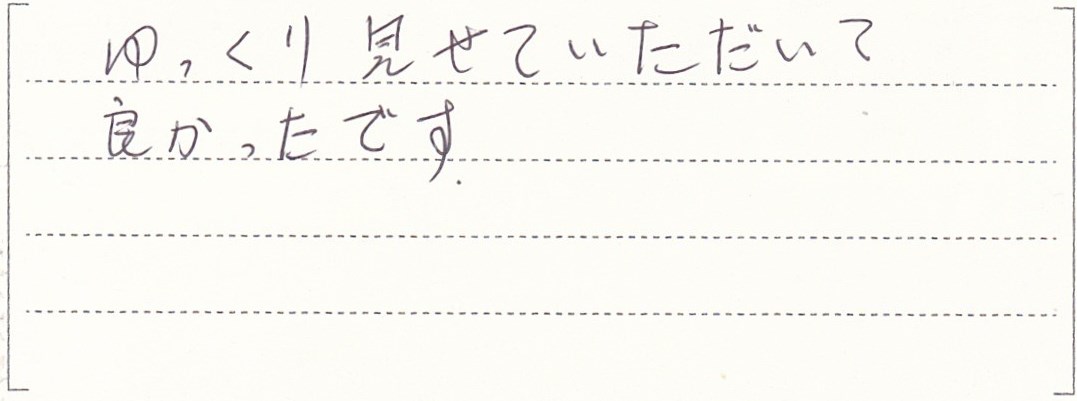 ゆっくり見せていただいて
良かったです.